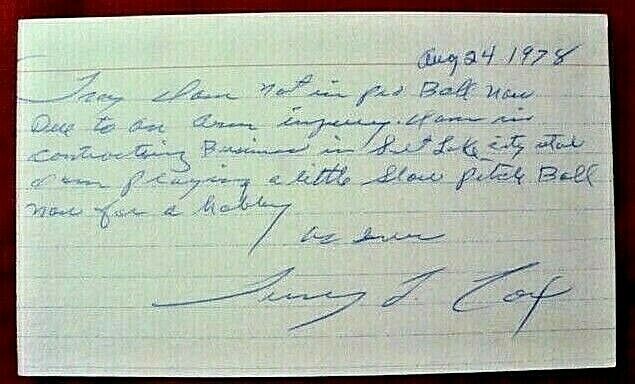 Aug 24 1978
Troy I am not in pro Ball now
Due to an arm injury. I am in
contracting Business in Salt Lake city utah
I am playing a little Slow pitch Ball
now for a hobby
as ever
Terry L. Cox